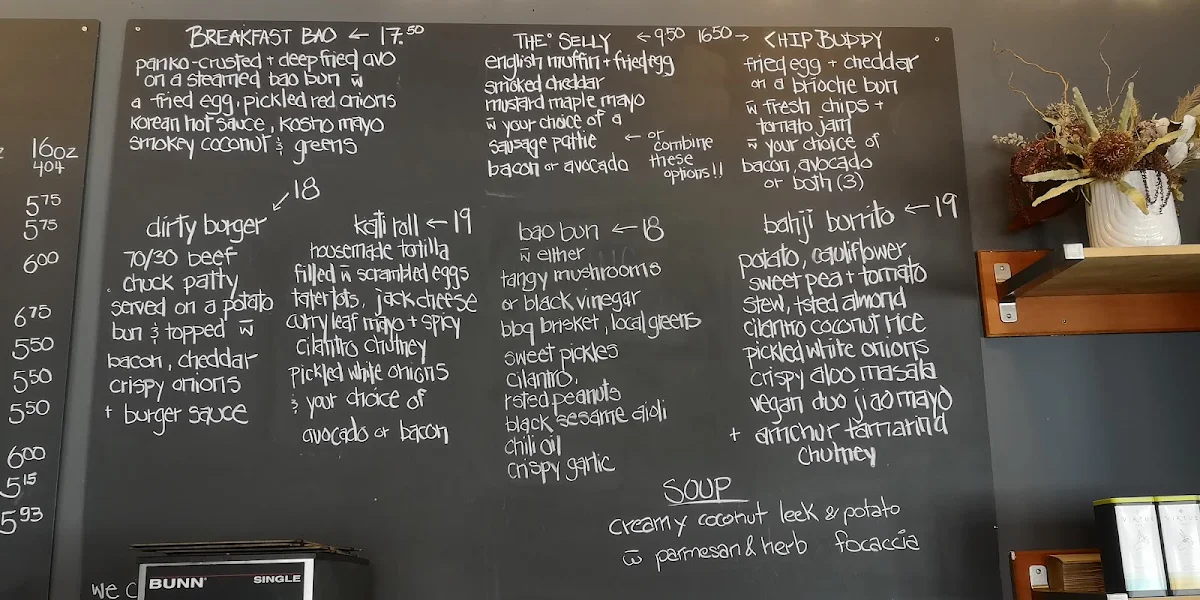 16oz
4.04
5.75
5.75
6.00
6.75
5.50
5.50
5.50
6.00
5.15
5.93
BREAKFAST BAO ← 17.50
panko-crusted + deep fried avo
on a steamed bao bun w̄
a fried egg, pickled red onions
korean hot sauce, kosho mayo
smokey coconut & greens
THE "SELLY ← 9.50
english muffin + fried egg
smoked cheddar
mustard maple mayo
w̄ your choice of a
sausage pattie
bacon or avocado
← or
combine
these
options!!
16.50 → CHIP BUDDY
fried egg + cheddar
on a brioche bun
w̄ fresh chips +
tomato jam
w̄ your choice of
bacon, avocado
or both (3)
18
dirty borger
70/30 beef
chuck patty
served on a potato
bun & topped w̄
bacon, cheddar
crispy onions
+ burger sauce
kati roll ← 19
housemade tortilla
filled w̄ scrambled eggs
tater tots, jack cheese
curry leaf mayo + spicy
cilantro chutney
pickled white onions
& your choice of
avocado or bacon
bao bun ← 18
w̄ either
tangy mushrooms
or black vinegar
bbq brisket, local greens
sweet pickles
cilantro,
rsted peanuts
black sesame aioli
chili oil
crispy garlic
bahji burrito ← 19
potato, cauliflower
sweet pea + tomato
stew, tsted almond
cilantro coconut rice
pickled white onions
crispy aloo masala
vegan duo jiao mayo
+ amchur tamarind
chutney
SOUP
creamy coconut leek & potato
w̄ parmesan & herb focaccia
we c
BUNN SINGLE
VIRTUE